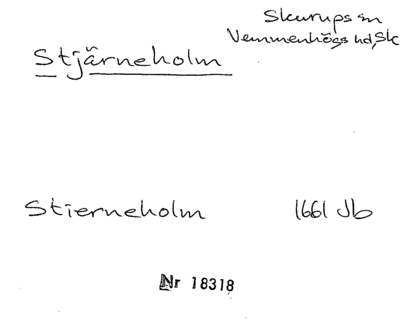 Skurups sn
Vemmenhögs hd, Sk
Stjärneholm
Stierneholm 1661 Jb
Nr 18318